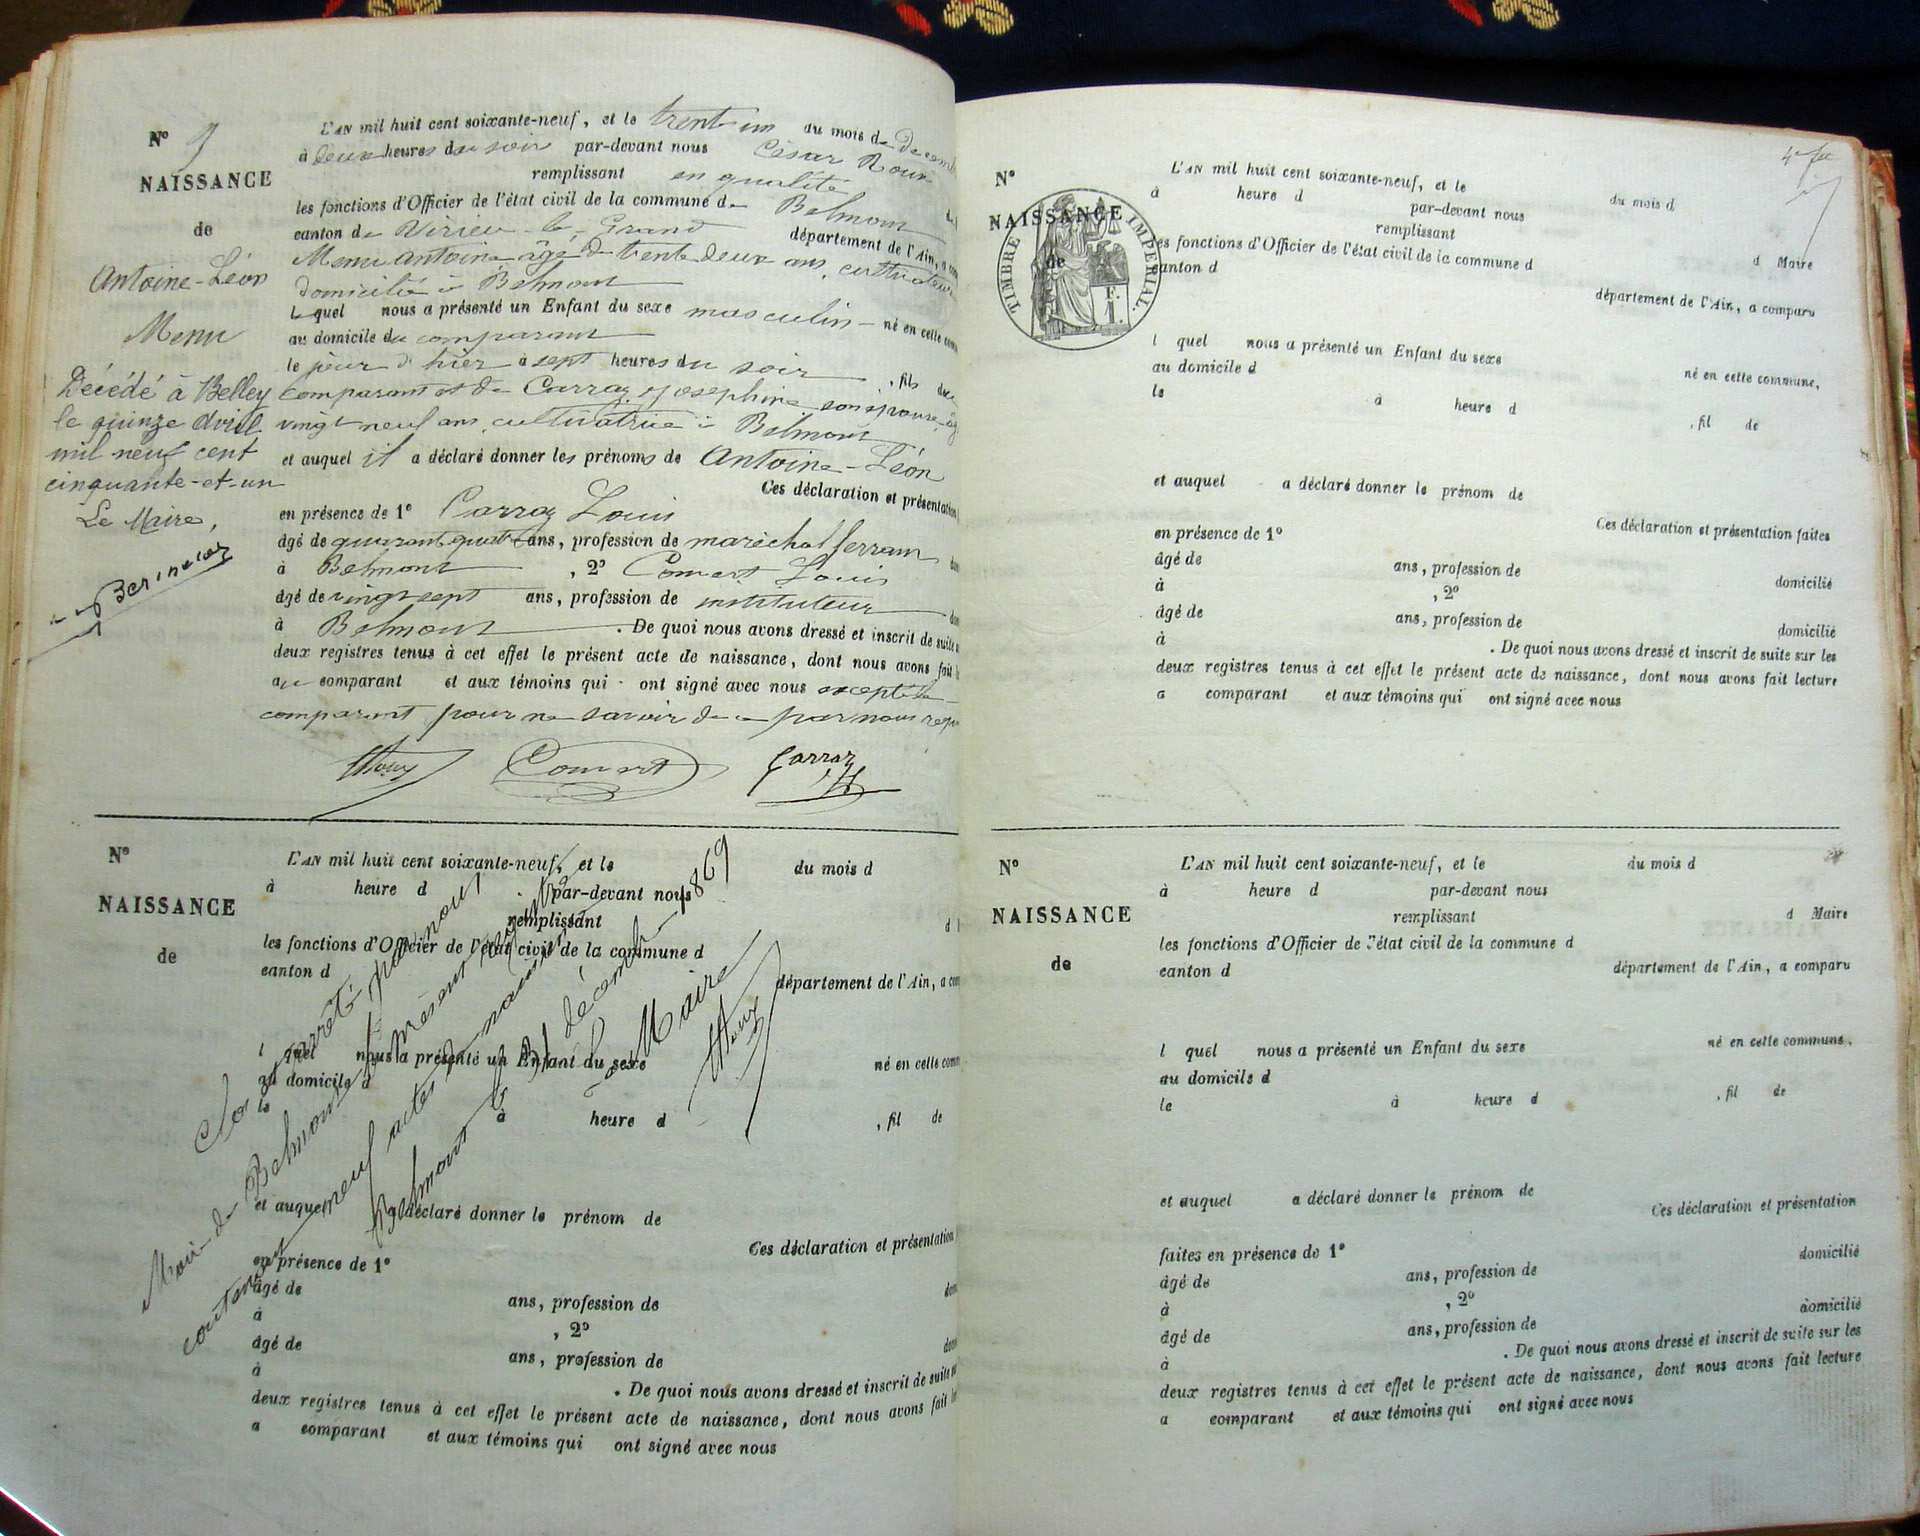 N° 9
NAISSANCE
de
Antoine-Léon
Menu
Décédé à Belley
le quinze Avril
mil neuf cent
cinquante-et-un
Le Maire,
L'AN mil huit cent soixante-neuf, et le trent un du mois de
à deux heures du soir par-devant nous César Roux
remplissant en qualité
les fonctions d'Officier de l'état civil de la commune de Belmont
canton de Virieu-le-Grand département de l'Ain, a
Menu Antoine âgé de trente deux ans, cultivateur
domicilié à Belmont
lequel nous a présenté un Enfant du sexe masculin né en cette
au domicile du comparant
le jour d'hier à sept heures du soir, fils du
comparant et de Carraz Josephine son épouse,
vingt neuf ans, cultivatrice à Belmont
et auquel il a déclaré donner les prénoms de Antoine-Léon
Ces déclaration et présentation
en présence de 1° Carraz Louis
âgé de quarante quatre ans, profession de maréchal ferrant
à Belmont, 2° Louis
âgé de vingt sept ans, profession de instituteur
à Belmont. De quoi nous avons dressé et inscrit de suite
deux registres tenus à cet effet le présent acte de naissance, dont nous avons fait
au comparant et aux témoins qui ont signé avec nous excepté le
comparant pour ne savoir de ce par nous
Roux Carraz
N°
NAISSANCE
de
L'AN mil huit cent soixante-neuf, et le du mois d
à heure d par-devant nous
remplissant
les fonctions d'Officier de l'état civil de la commune d
canton d
département de l'Ain, a
l quel nous a présenté un Enfant du sexe
au domicile d né en cette
le à heure d , fil de
et auquel a déclaré donner le prénom de
Ces déclaration et présentation
en présence de 1°
âgé de ans, profession de
à , 2°
âgé de ans, profession de
à . De quoi nous avons dressé et inscrit de suite
deux registres tenus à cet effet le présent acte de naissance, dont nous avons fait
a comparant et aux témoins qui ont signé avec nous
arrêté par nous
Maire de Belmont le présent registre
contenant neuf actes de naissance
Belmont le 31 décembre 1869
Le Maire
Roux
N°
NAISSANCE
de
TIMBRE IMPERIAL.
F.
1.
L'AN mil huit cent soixante-neuf, et le du mois d
à heure d par-devant nous
remplissant d Maire
les fonctions d'Officier de l'état civil de la commune d
canton d département de l'Ain, a comparu
l quel nous a présenté un Enfant du sexe
au domicile d né en cette commune,
le à heure d , fil de
et auquel a déclaré donner le prénom de
Ces déclaration et présentation faites
en présence de 1°
âgé de ans, profession de domicilié
à , 2°
âgé de ans, profession de domicilié
à . De quoi nous avons dressé et inscrit de suite sur les
deux registres tenus à cet effet le présent acte de naissance, dont nous avons fait lecture
a comparant et aux témoins qui ont signé avec nous
N°
NAISSANCE
de
L'AN mil huit cent soixante-neuf, et le du mois d
à heure d par-devant nous
remplissant d Maire
les fonctions d'Officier de l'état civil de la commune d
canton d département de l'Ain, a comparu
l quel nous a présenté un Enfant du sexe né en cette commune,
au domicile d
le à heure d , fil de
et auquel a déclaré donner le prénom de
Ces déclaration et présentation
faites en présence de 1° domicilié
âgé de ans, profession de
à , 2° domicilié
âgé de ans, profession de
à . De quoi nous avons dressé et inscrit de suite sur les
deux registres tenus à cet effet le présent acte de naissance, dont nous avons fait lecture
a comparant et aux témoins qui ont signé avec nous